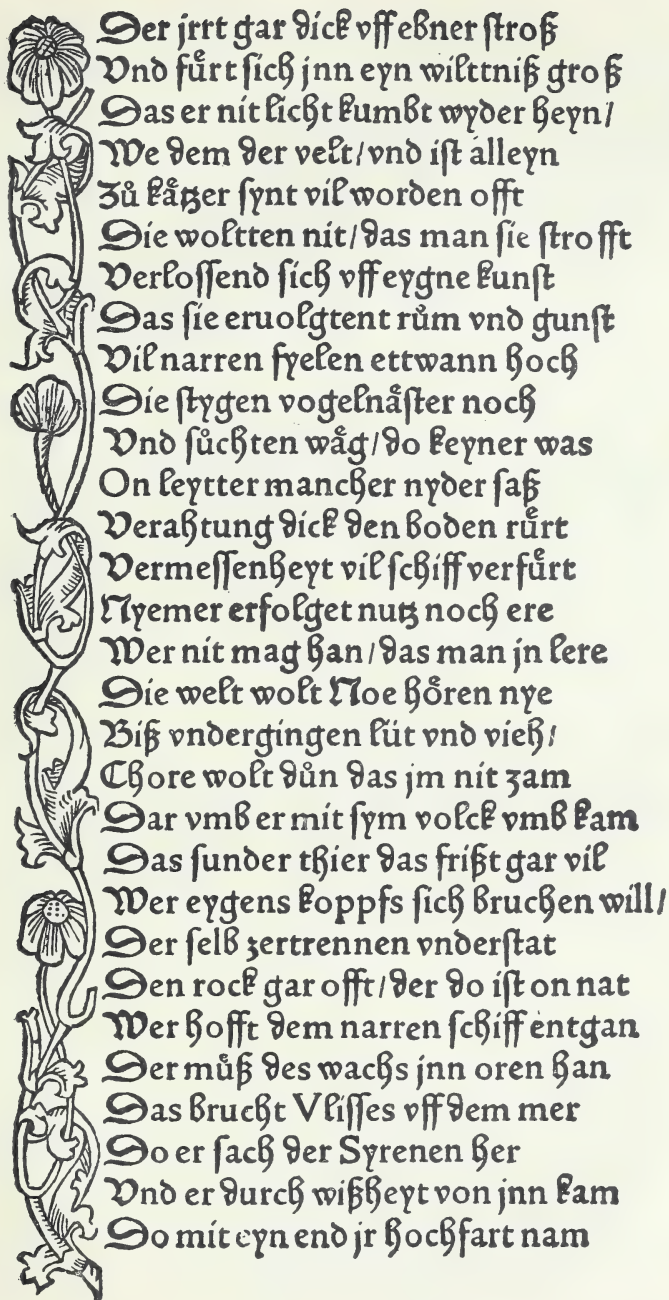 Der jrrt gar dick vff ebner stroß
Vnd fůrt sich jnn eyn wilttniß groß
Das er nit licht kumbt wyder heyn/
We dem der velt/ vnd ist alleyn
Zů kåtzer synt vil worden offt
Die woltten nit/ das man sie strofft
Verlossend sich vff eygne kunst
Das sie eruolgtent rům vnd gunst
Vil narren fyelen ettwann hoch
Die stygen vogelnåster noch
Vnd sůchten wåg/ do keyner was
On leytter mancher nyder saß
Verahtung dick den boden ru̎rt
Vermessenheyt vil schiff verfu̎rt
Nyemer erfolget nutz noch ere
Wer nit mag han/ das man jn lere
Die welt wolt Noe ho̎ren nye
Biß vndergingen lüt vnd vieh/
Chore wolt důn das jm nit zam
Dar vmb er mit sym volck vmb kam
Das sunder thier das frißt gar vil
Wer eygens koppfs sich bruchen will/
Der selb zertrennen vnderstat
Den rock gar offt/ der do ist on nat
Wer hofft dem narren schiff entgan
Der můß des wachs jnn oren han
Das brucht Vlisses vff dem mer
Do er sach der Syrenen her
Vnd er durch wißheyt von jnn kam
Do mit eyn end jr hochfart nam